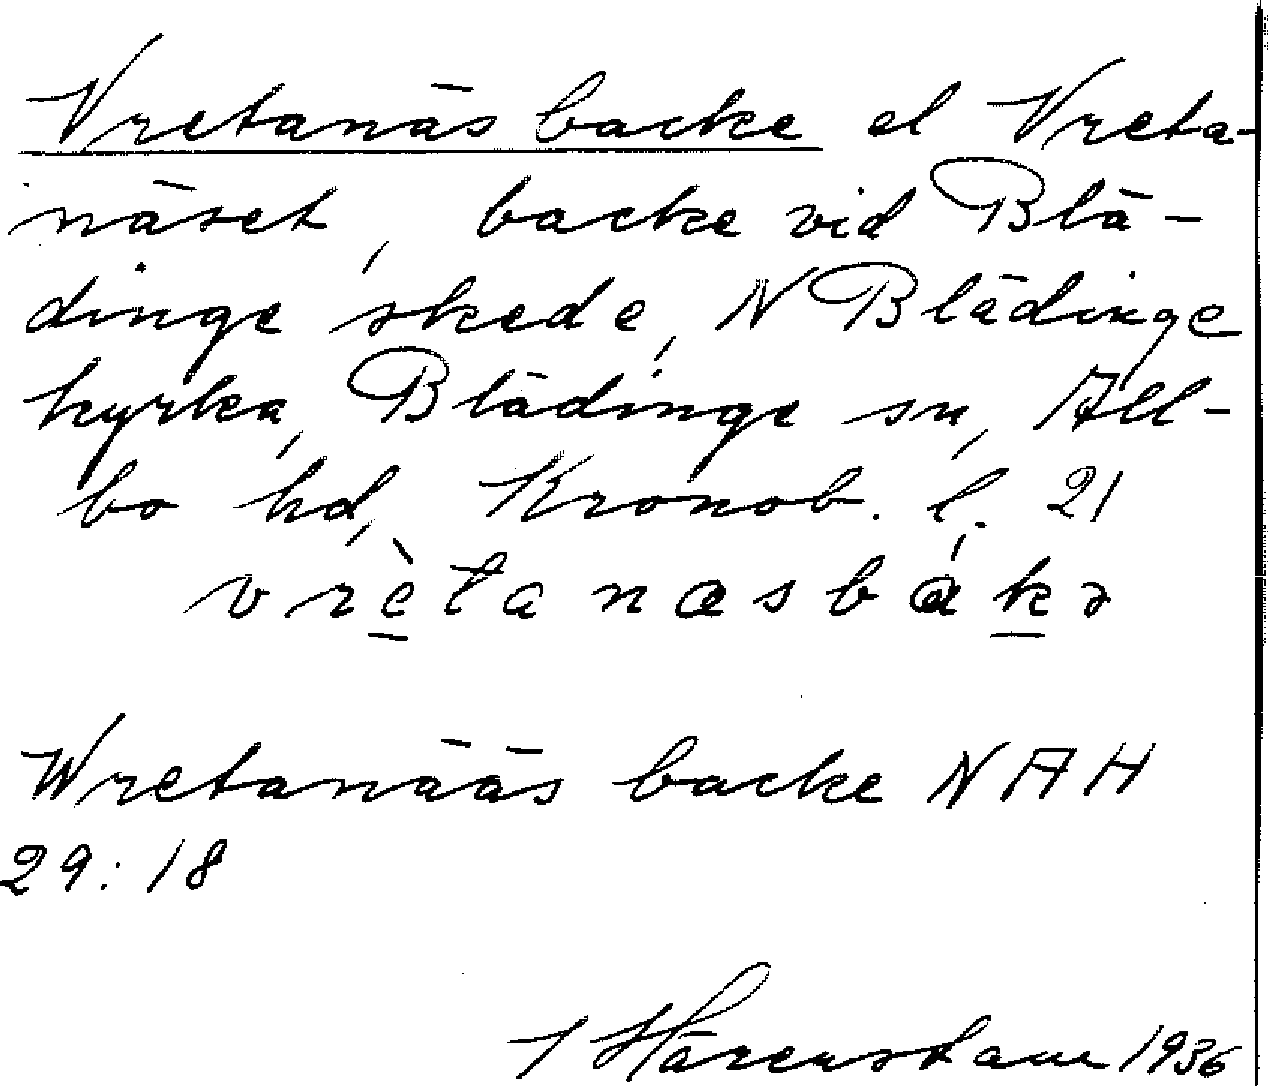 Vretanäs backe el Vreta-
näset, backe vid Blä-
dinge skede, N Blädinge
kyrka, Blädinge sn, All-
bo hd, Kronob. l. 21
vrètanæsbákə
Wretanääs backe NAH
29:18
I Härenstam 1936